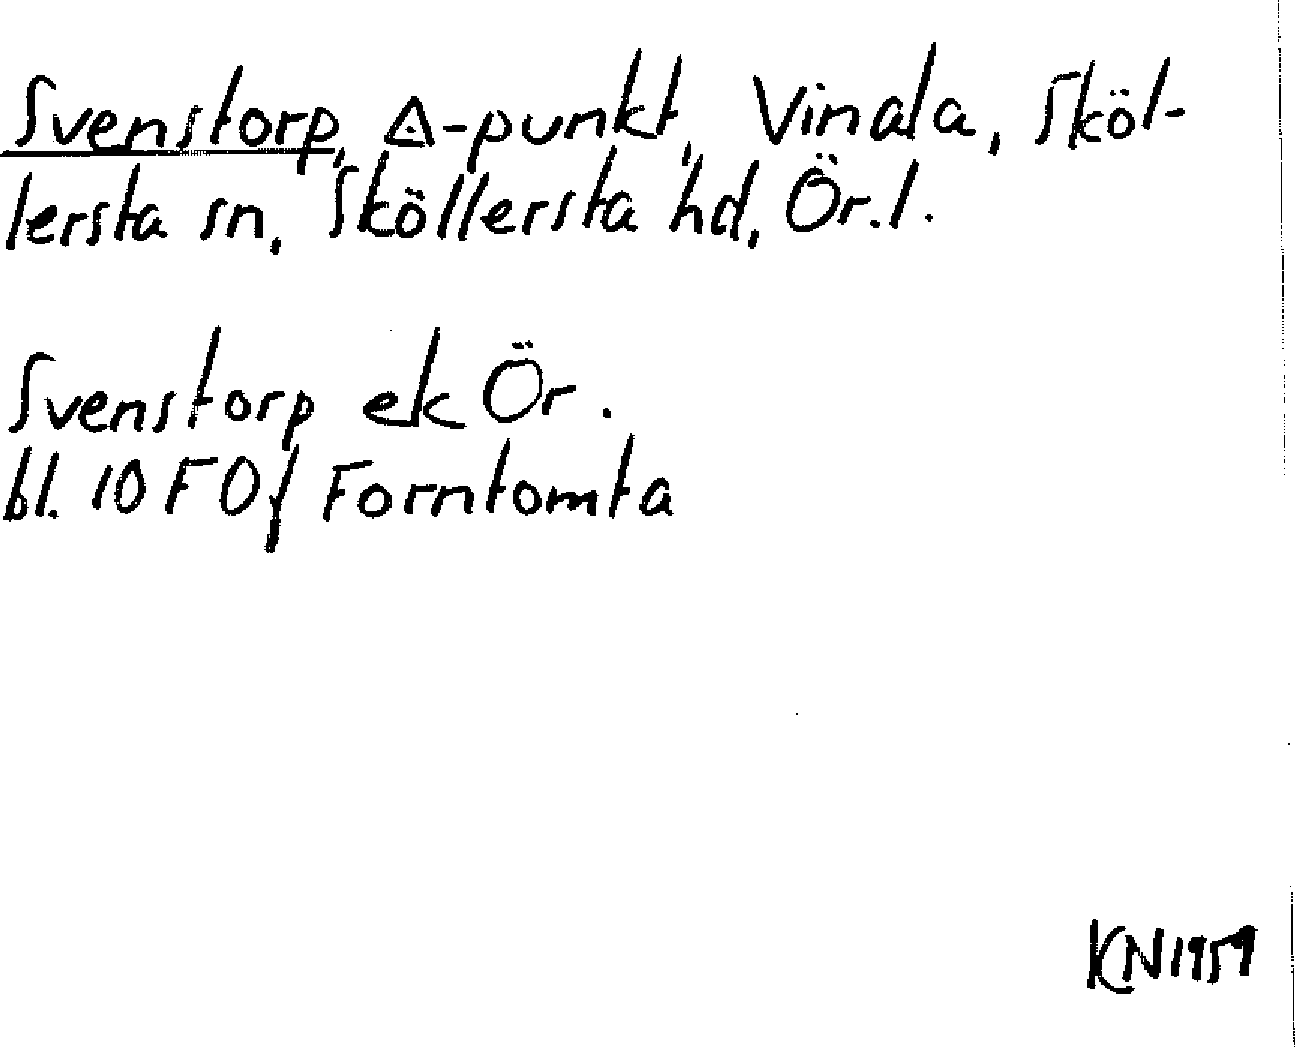 Svenstorp, △-punkt, Vinala, Sköl-
lersta sn, Sköllersta hd, Ör.l.
Svenstorp ek Ör.
bl. 10 F 0f Forntomta
KN1959